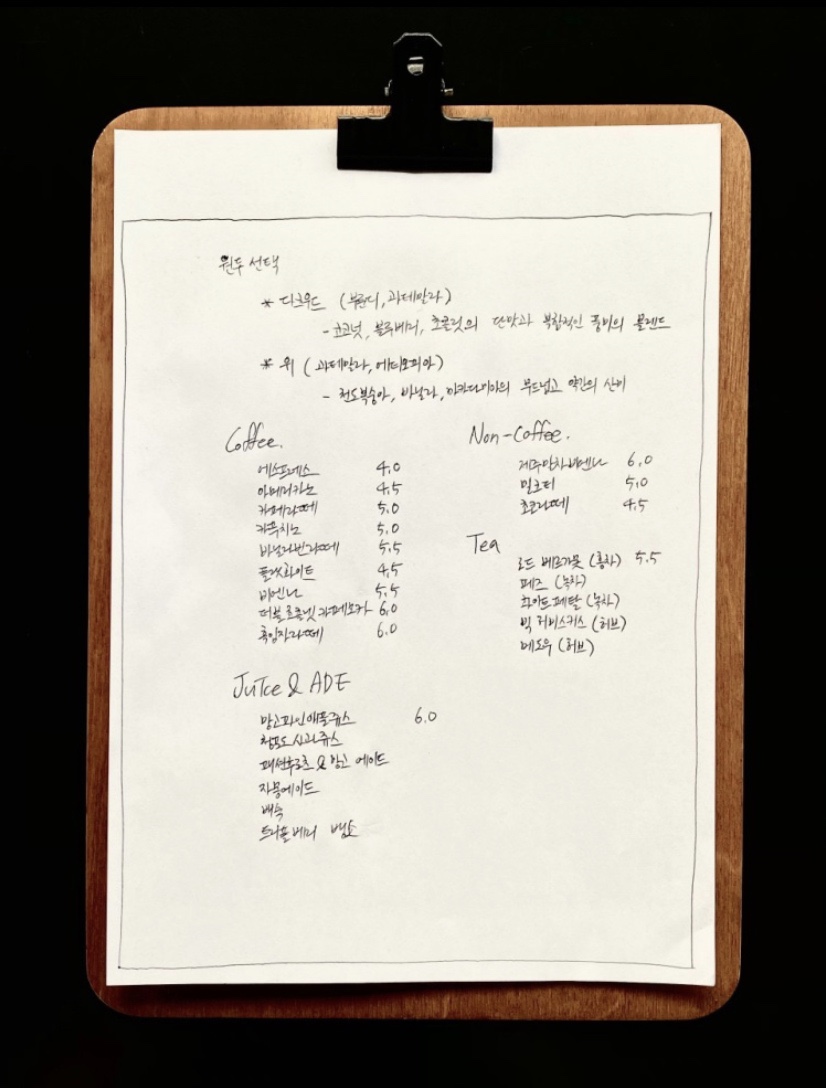 원두 선택
* 디크우드 (부룬디, 과테말라)
- 코코넛, 블루베리, 초콜릿의 단맛과 복합적인 풍미의 블렌드
* 위 (과테말라, 에티오피아)
- 천도복숭아, 바닐라, 마카다미아의 부드럽고 약간의 산미
Coffee.
에스프레스 4.0
아메리카노 4.5
카페라떼 5.0
카푸치노 5.0
바닐라빈라떼 5.5
플랫화이트 4.5
비엔나 5.5
더블초콜렛카페모카 6.0
흑임자라떼 6.0
Non-Coffee.
제주말차비엔나 6.0
밀크티 5.0
초코라떼 4.5
Tea
로드 베르가못 (홍차) 5.5
페즈 (녹차)
화이트페탈 (녹차)
빅 히비스커스 (허브)
메도우 (허브)
JuIce & ADE
망고파인애플쥬스 6.0
청포도사과쥬스
패션후르츠 & 망고 에이드
자몽에이드
배숙
트리플베리 뱅쇼